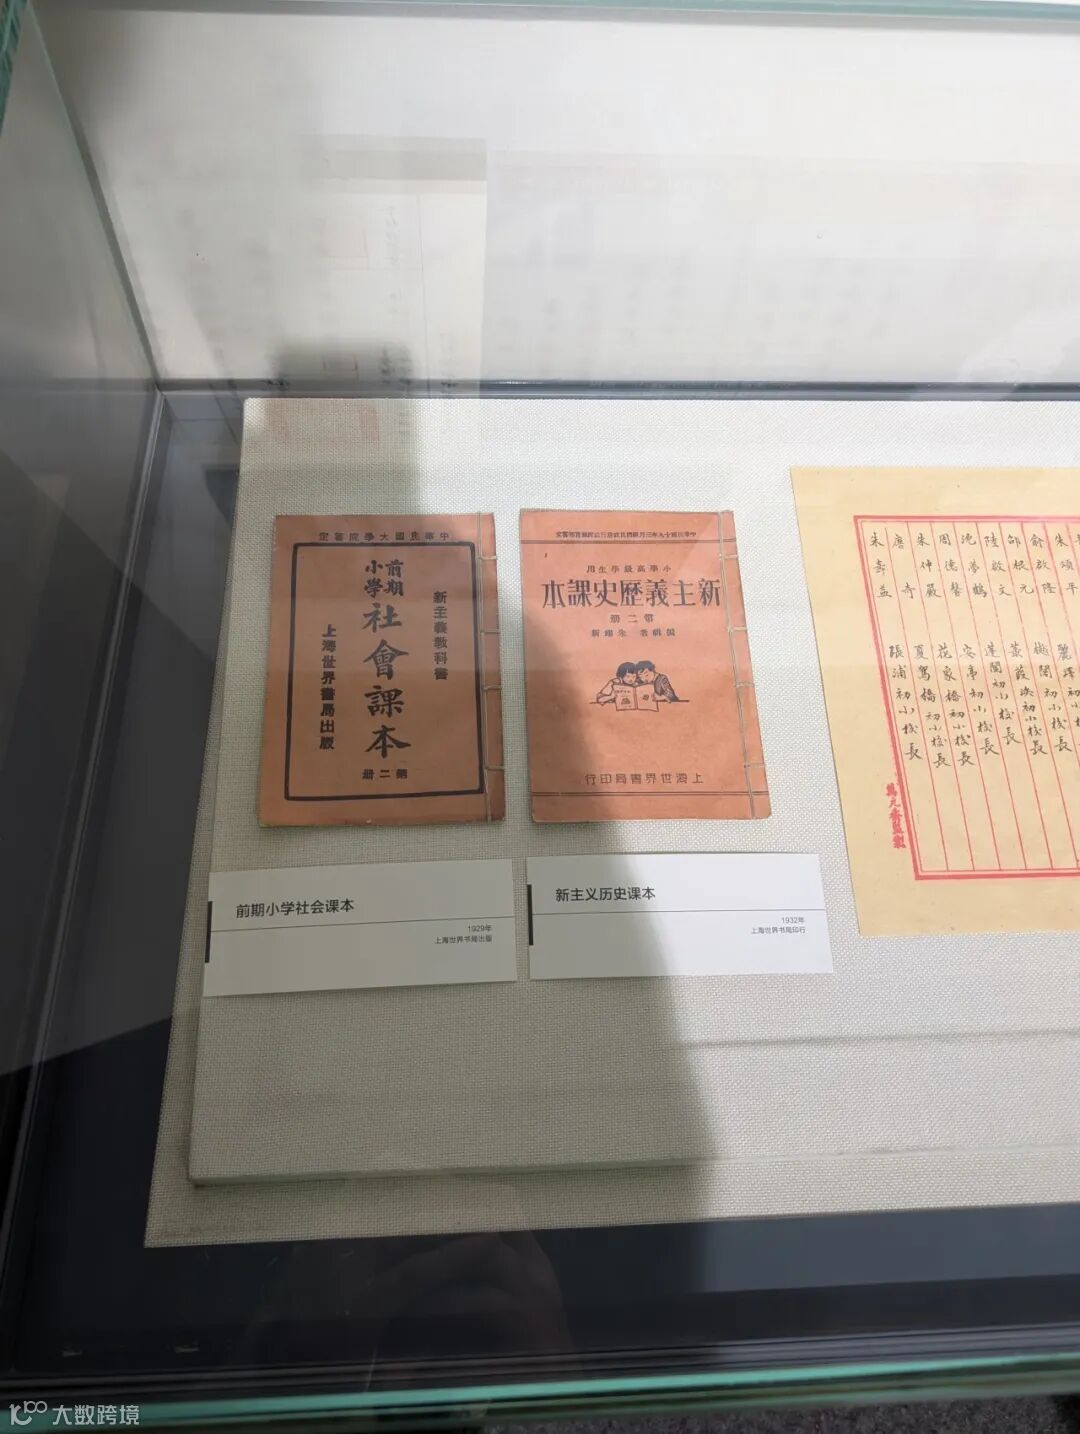 中華民國大學院審定
新主義教科書
前期小學
社會課本
第二册
上海世界書局出版
小學高級學生用
新主義歷史課本
第二册
編輯者 朱翊新
上海世界書局印行
前期小学社会课本
1929年
上海世界书局出版
新主义历史课本
1932年
上海世界书局印行
朱頌平
俞啟隆
邰根元
陸啟文 蓬閬初小校長
沈夢鶴 安亭初小校長
周德馨 花家橋初小校長
朱仲嚴 夏駕橋初小校長
唐奇 張浦初小校長
朱壽益
大数跨境